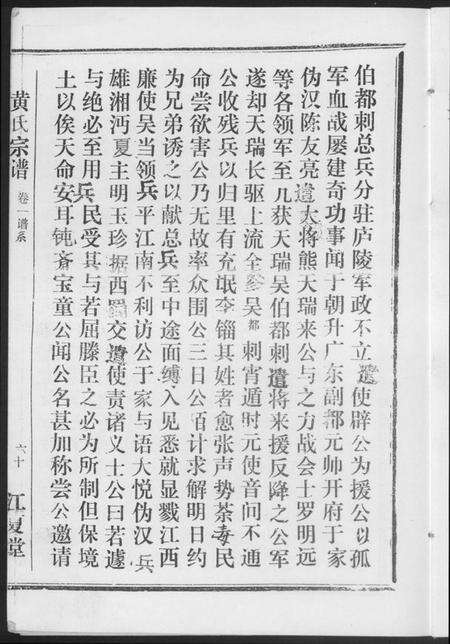 伯都刺总兵分驻庐陵军政不立遣使辟公为援公以孤
军血战屡建奇功事闻于朝升广东副都元帅开府于家
伪汉陈友亮遣大将熊天瑞来公与之方战会士罗明远
等各领军至几获天瑞吴伯都刺遣将来援反降之公军
遂却天瑞长驱上流全 吴都刺宵遁时元使音问不通
公收残兵以归里有充氓李锱其姓者愈张声势荼毒民
命尝欲害公乃无故率众围公三日公百计求解明日约
为兄弟诱之以献总兵至中途面缚入见悉就显戮江西
廉使吴当领兵平江南不利访公于家与语大悦伪汉兵
雄湘沔夏主明玉珍据西蜀交遣使责诸义士公曰若遽
与绝必至用兵民受其与若屈滕臣之必为所制但保境
土以俟天命安耳钝斋宝童公闻公名甚加称尝公邀请
黄氏宗谱
卷一谱系
六十
江夏堂